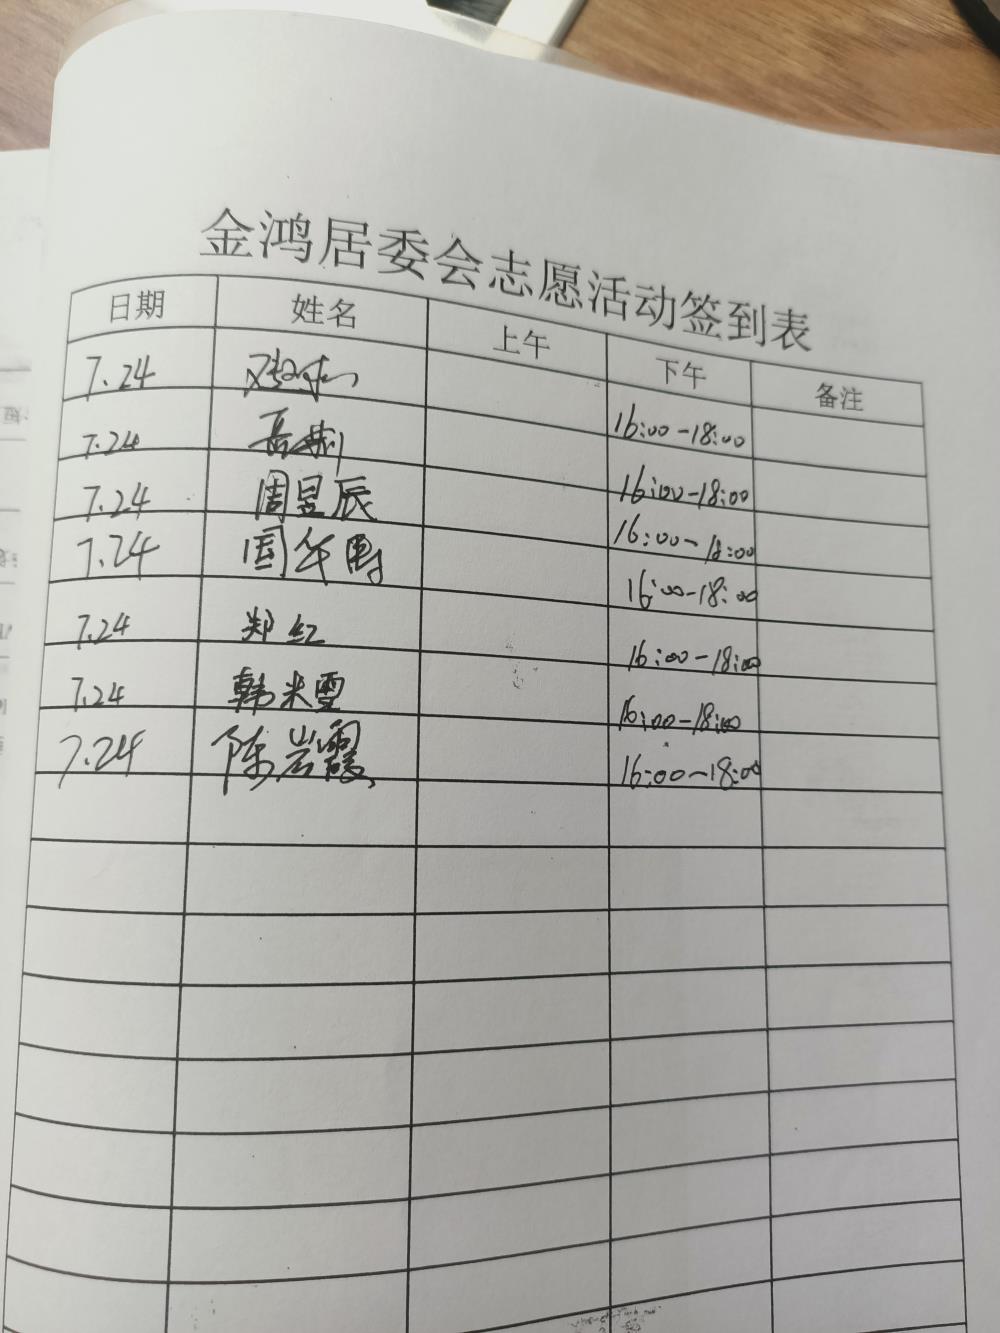 金鸿居委会志愿活动签到表
日期 姓名 上午 下午 备注
7.24 16:00-18:00
7.24 16:00-18:00
7.24 周昱辰 16:00-18:00
7.24 16:00-18:00
7.24 郑红 16:00-18:00
7.24 韩米雪 16:00-18:00
7.24 陈岩霞 16:00-18:00